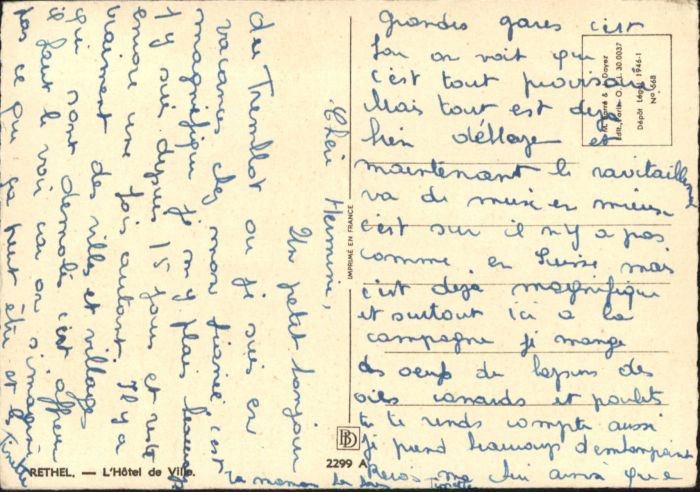 Chère Hermine,
Un petit bonjour
du Tremblot ou je suis en
vacances chez mon fiancé, c'est
magnifique je m'y plais beaucoup
j'y suis depuis 15 jours et reste
encore une fois autant. Il y a
vraiment des villes et villages
qui sont demolis c'est affreux
il faut le voir car on s'imagine
pas ce que ça peut être et les
Grandes gares c'est
fou on voit que
c'est tout provisoire
Mais tout est deja
bien déblaye et
maintenant le ravitaillement
va de mieux en mieux
c'est sur il n'y a pas
comme en Suisse mais
c'est deja magnifique
et surtout ici a la
campagne je mange
des oeufs du lapins des
oies canards et poulets
tu te rends compte aussi
je prend beaucoup d'embonpoint
Recois ma chérie ainsi que
ta maman les bons
RETHEL. — L'Hôtel de Ville.
2299 A
BD
IMPRIMÉ EN FRANCE
Edit. Paris O. P. I. 30.0037
Dépôt Légal 1946-1
N° 668